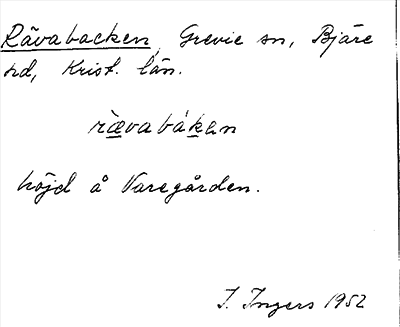 Rävabacken, Grevie sn, Bjäre
hd, Krist. län.
rævabákan
höjd å Varegården.
I. Ingers 1952